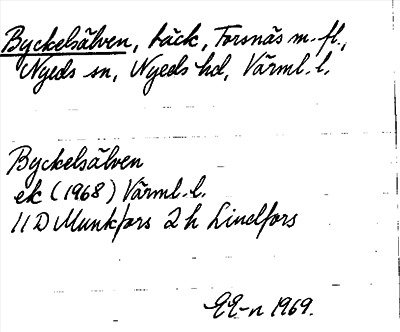 Byckelsälven, bäck, Forsnäs m. fl.,
Nyeds sn, Nyeds hd, Värml. l.
Byckelsälven
ek (1968) Värml. l.
11 D Munkfors 2 h Lindfors
EE-n 1969.